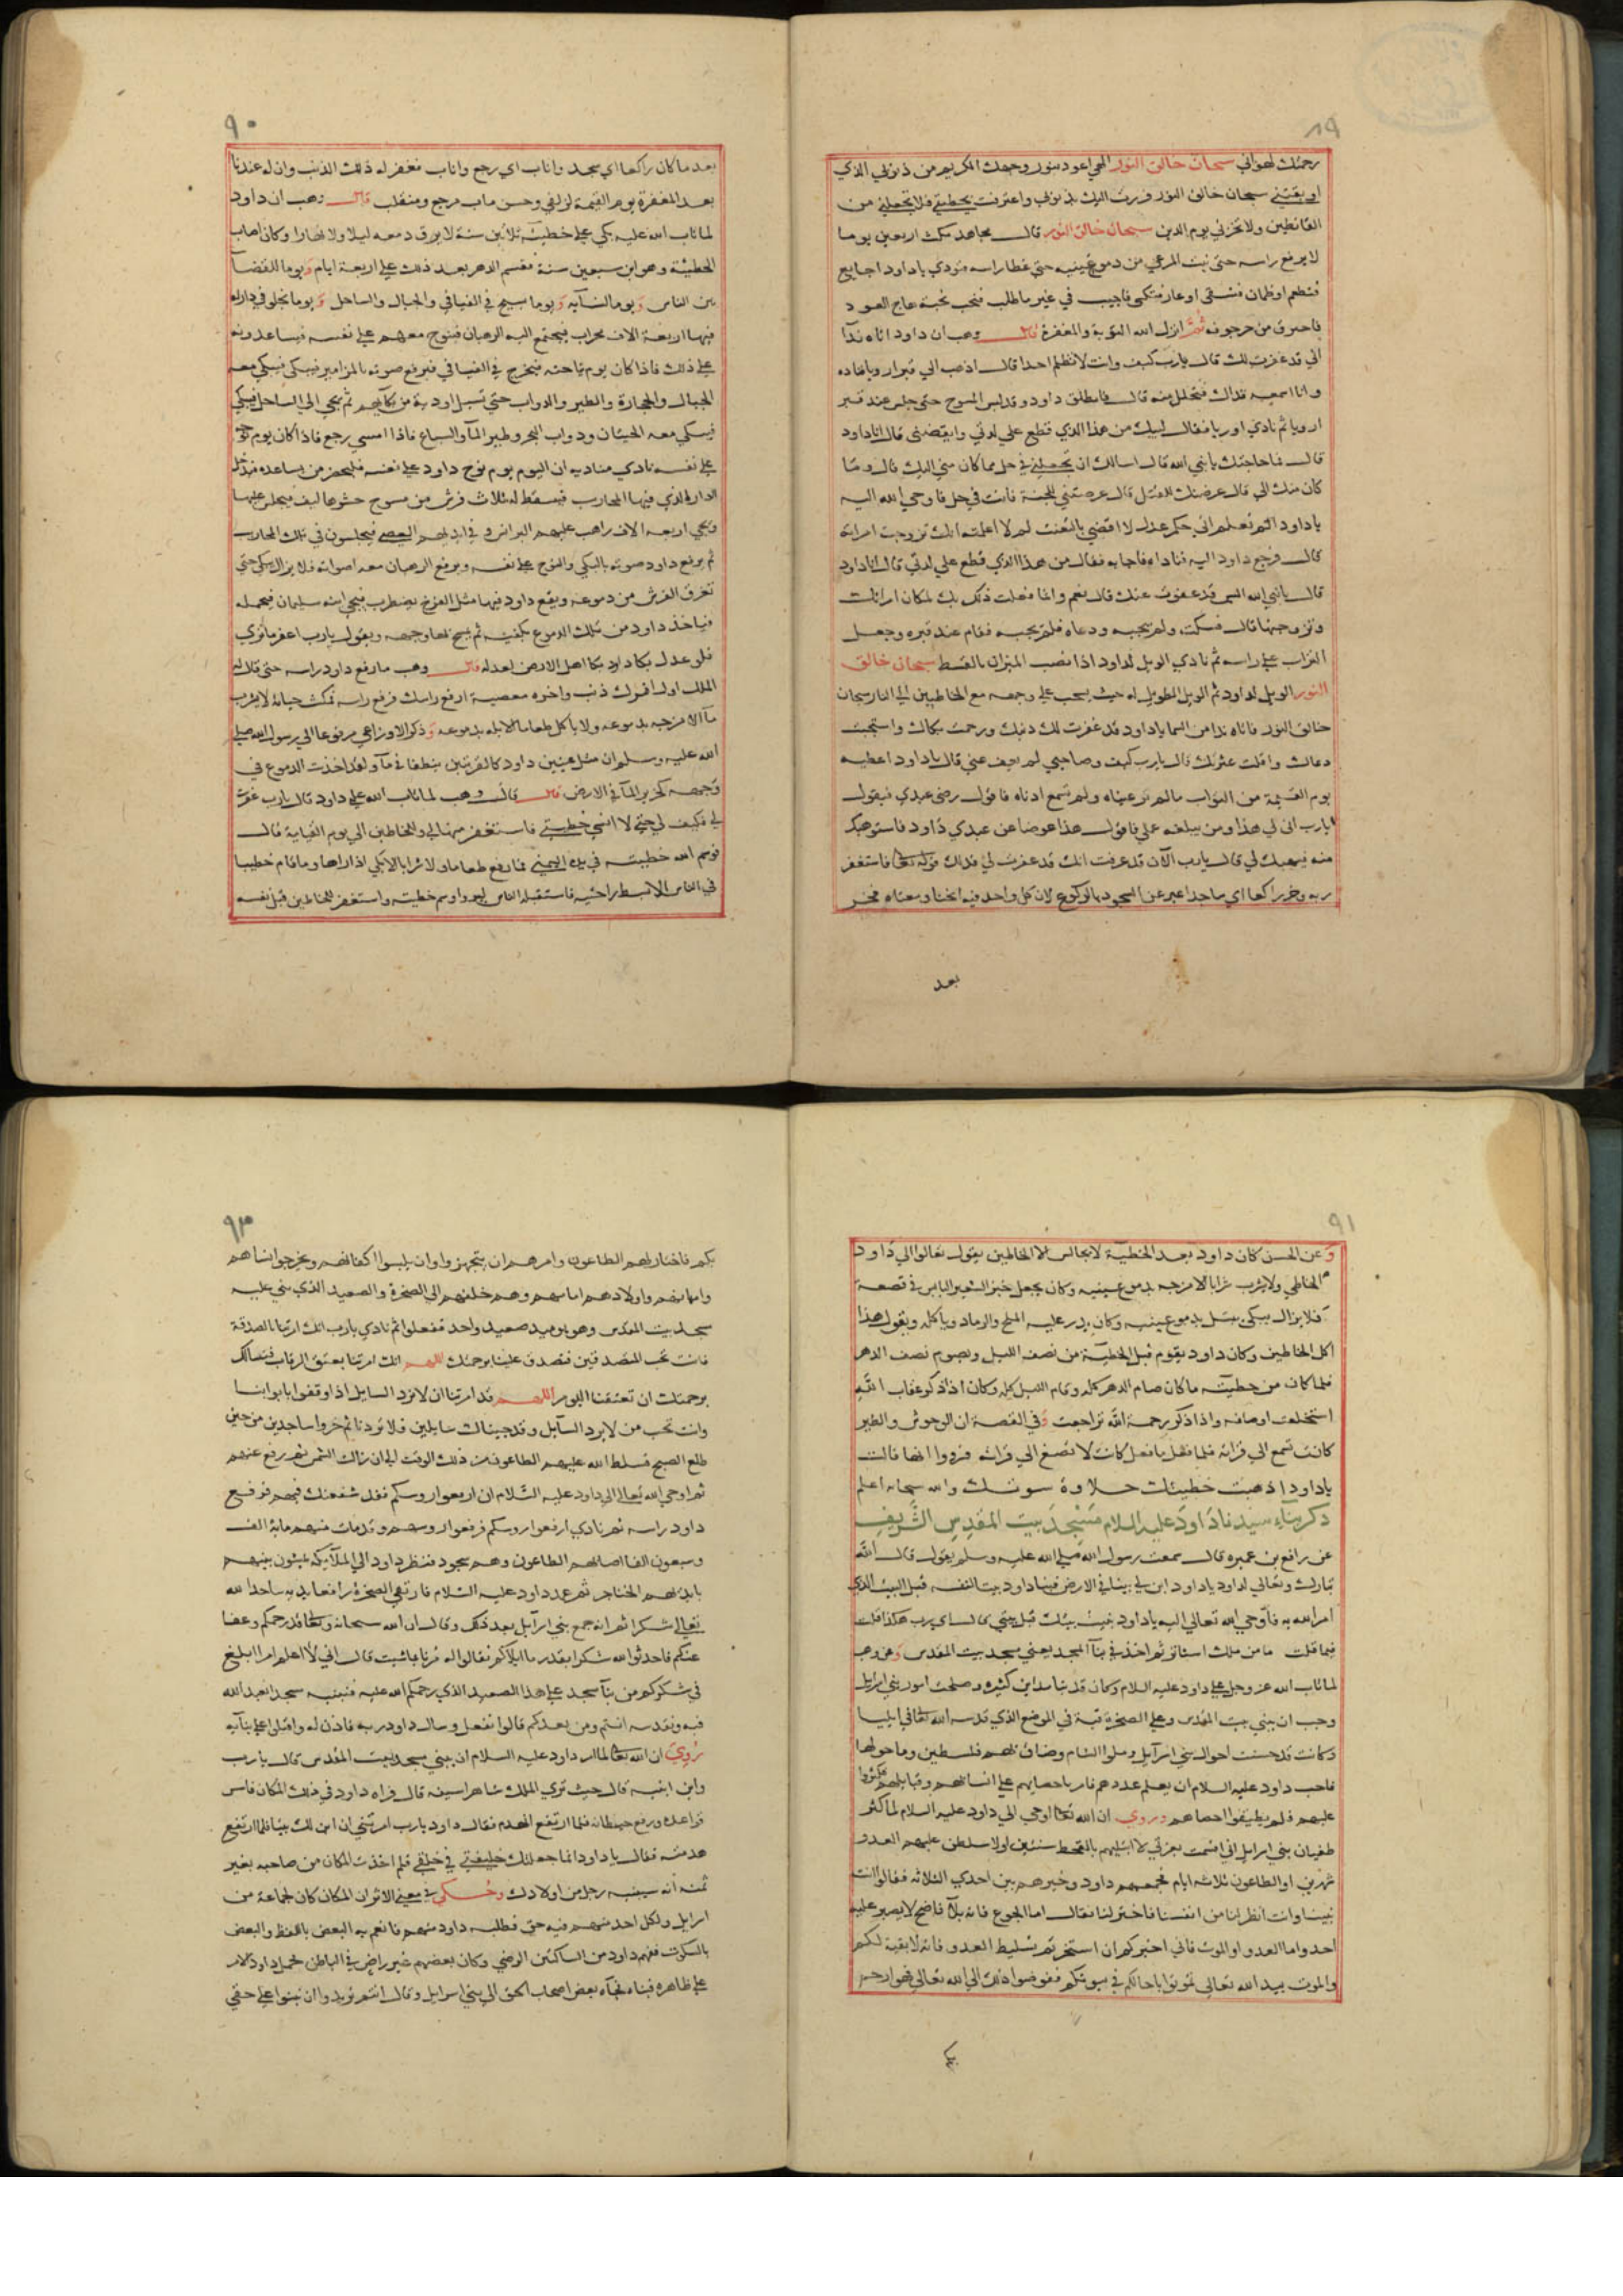 ٨٩
رحمتك لهواني سبحان خالق النور الهي اعوذ بنور وجهك الكريم من ذنوبي الذي
اوبقتني سبحان خالق النور فررت اليك بذنوبي واعترفت بخطيئتي فلا تجعلني من
القانطين ولا تخزني يوم الدين سبحان خالق النور قال مجاهد مكث اربعين يوما
لا يرفع راسه حتى نبت المرعي من دموع عينيه حتى غطا راسه فنودي ياداود اجايع
فتطعم او ظمان فتسقى او عار فتكسى فاجيب في غير ما طلب فنحب نحبة هاج العود
فاحترق من حر جوفه ثم انزل الله التوبة والمغفرة قال وهب ان داود اتاه ندآ
اني قد غفرت لك قال يارب كيف وانت لا تظلم احدا قال اذهب الي قبر اوريا فناده
وانا اسمعه نداك فتحلل منه قال فانطلق داود وقد لبس المسوح حتى جلس عند قبر
اوريا ثم نادي اوريا فقال لبيك من هذا الذي قطع علي لذتي وايقضني قال انا داود
قال فما حاجتك يانبي الله قال اسالك ان تجعلني في حل مما كان مني اليك قال وما
كان منك الي قال عرضتك للقتل قال عرضتني للجنة فانت في حل فاوحي الله اليه
ياداود الم تعلم اني حكم عدل لا اقضي بالتعنت لم لا اعلمته انك تزوجت امراته
قال فرجع داود اليه فناداه فاجابه فقال من هذا الذي قطع علي لذتي قال انا داود
قال يانبي الله اليس قد عفوت عنك قال نعم وانما فعلت ذلك بك لمكان امراتك
وتزوجتها قال فسكت ولم يجبه ودعاه فلم يجبه فقام عند قبره وجعل
التراب علي راسه ثم نادي الويل لداود اذا نصب الميزان بالقسط سبحان خالق
النور الويل لداود ثم الويل الطويل له حيث يسحب علي وجهه مع الخاطيين الي النار سبحان
خالق النور فاتاه ندا من السما ياداود قد غفرت لك ذنبك ورحمت بكاك واستجبت
دعاك واقلت عثرتك قال يارب كيف وصاحبي لم يعف عني قال ياداود اعطيه
يوم القيمة من الثواب مالم تر عيناه ولم تسمع اذناه فاقول رضى عبدي فيقول
يارب انى لي هذا ومن يبلغه عملي فاقول هذا عوضا عن عبدي داود فاستوهبك
منه فيهبك لي قال يارب الآن قد عرفت انك قد غفرت لي فذلك قوله تعا فاستغفر
ربه وخر راكعا اي ساجدا عبر عن السجود بالركوع لان كل واحد فيه انحنا ومعناه فخر
بعد
٩٠
بعد ما كان راكعا اي سجد واناب اي رجع واناب فغفر له ذلك الذنب وان له عندنا
بعد المغفرة يوم القيمة لزلفي وحسن ماب مرجع ومنقلب قال وهب ان داود
لما تاب الله عليه بكي علي خطيئته ثلاثين سنة لا يرق دمعه ليلا ولا نهارا وكان اصاب
الخطيئة وهو ابن سبعين سنة فقسم الدهر بعد ذلك علي اربعة ايام ويوما للقضآ
بين الناس ويوما لنسآيه ويوما يسيح في الفيافي والجبال والساحل ويوما يخلو في دار له
فيها اربعة الاف محراب فيجتمع اليه الرهبان فينوح معهم علي نفسه فيساعدونه
علي ذلك فاذا كان يوم نياحته فيخرج في الفيافي فيرفع صوته بالمزامير فيبكي فيبكي معه
الجبال والحجارة والطير والدواب حتى تسيل اودية من بكآيهم ثم يجي الي الساحل فيبكي
فيبكي معه الحيتان ودواب البحر وطير المآ والسباع فاذا امسي رجع فاذا كان يوم نوحه
علي نفسه نادي مناديه ان اليوم يوم نوح داود علي نفسه فليحضر من يساعده فيدخل
الدار الذي فيها المحاريب فيبسط له ثلاث فرش من مسوح حشوها ليف فيجلس عليها
ويجي اربعه الاف راهب عليهم البرانس وفي ايديهم العصي فيجلسون في تلك المحاريب
ثم يرفع داود صوته بالبكي والنوح علي نفسه ويرفع الرهبان معه اصواتهم فلا يزال يبكي حتى
تغرق الفرش من دموعه ويقع داود فيها مثل الفرخ يضطرب فيجي ابنه سليمان فيحمله
فياخذ داود من تلك الدموع بكفيه ثم يمسح بها وجهه ويقول يارب اغفر ما تري
فلو عدل بكا داود بكا اهل الارض لعدله قال وهب ما رفع داود راسه حتى قال له
الملك اول امرك ذنب واخره معصية ارفع راسك فرفع راسه فمكث حياته لا يشرب
مآ الا مزجه بدموعه ولا ياكل طعاما الا بله بدموعه وذكر الاوزاعي مرفوعا الي رسول الله صلي
الله عليه وسلم ان مثل عيني داود كالقربتين ينطفان مآ ولقد اخذت الدموع في
وجهه كخرير المآ في الارض قال قال وهب لما تاب الله علي داود قال يارب غفرت
لي فكيف لي حتى لا انسي خطيئتي فاستغفر منها لي وللخاطيين الي يوم القيامة قال
فوسم الله خطيته في يده اليمني فما رفع طعاما ولا شرابا الا بكي اذا راها وما قام خطيبا
في الناس الا بسط راحته فاستقبله الناس ليروا وسم خطيته واستغفر للخاطيين قبل نفسه
٩١
وعن الحسن كان داود بعد الخطيئة لا يجالس الا الخاطيين يقول تعالوا الي داود
الخاطي ولا يشرب شرابا الا مزجه بدموع عينيه وكان يجعل خبز الشعير اليابس في قصعة
فلا يزال يبكي حتى يبتل بدموع عينيه وكان يدر عليه الملح والرماد وياكله ويقول هذا
اكل الخاطيين وكان داود يقوم قبل الخطيئة من نصف الليل ويصوم نصف الدهر
فلما كان من خطيئته ما كان صام الدهر كله وقام الليل كله وكان اذا ذكر عقاب الله
استخلعت اوصاله واذا ذكر رحمة الله تراجعت وفي القصة ان الوحوش والطير
كانت تسمع الي قراته فلما فعل ما فعل كانت لا تصغ الي قراته فرووا انها قالت
ياداود اذهبت خطيئتك حلاوة صوتك والله سبحانه اعلم
ذكر بناء سيدنا داود عليه السلام مسجد بيت المقدس الشريف
عن رافع بن عميره قال سمعت رسول الله صلي الله عليه وسلم يقول قال الله
تبارك وتعالي لداود ياداود ابن لي بيتا في الارض فبنا داود بيتا لنفسه قبل البيت الذي
امر الله به فاوحي الله تعالي اليه ياداود بنيت بيتك قبل بيتي قال اي رب هكذا قلت
فيما قلت ما من ملك استاثر ثم اخذ في بنآ المسجد يعني مسجد بيت المقدس وعن وهب
لما تاب الله عز وجل علي داود عليه السلام وكان قد بنا مداين كثيره وصلحت امور بني اسرايل
وحب ان يبني بيت المقدس وعلي الصخرة قبة في الموضع الذي قدسه الله تعالي في ايليا
وكانت قد حسنت احوال بني اسرآيل وملوا الشام وضاق بهم فلسطين وما حولها
فاحب داود عليه السلام ان يعلم عددهم فامر باحصايهم علي انسابهم وقبايلهم فكثروا
عليهم فلم يطيقوا احصاهم وروي ان الله تعا اوحي الي داود عليه السلام لما كثر
طغيان بني اسرايل اني اقسمت بعزتي لا ابتليهم بالقحط سنتين او لاسلطن عليهم العدو
شهرين او الطاعون ثلاثه ايام فجمعهم داود وخيرهم بين احدي الثلاثه فقالوا انت
نبينا وانت انظر لنا من انفسنا فاختر لنا فقال اما الجوع فانه بلآ فاضح لا يصبر عليه
احد واما العدو او الموت فاني اخبركم ان اسخترتم تسليط العدو فانه لا بقية لكم
والموت بيد الله تعالي تموتوا باجالكم في بيوتكم ففوضوا ذلك الي الله تعالي فهو ارحم
بكم
٩٢
بكم فاختار لهم الطاعون وامرهم ان يتجهزوا وان يلبسوا اكفانهم ويخرجوا نساهم
وامآيهم واولادهم امامهم وهم خلفهم الي الصخرة والصعيد الذي بني عليه
مسجد بيت المقدس وهو يوميد صعيد واحد ففعلوا ثم نادي يارب انك امرتنا بالصدقة
فانت تحب المتصدقين فتصدق علينا برحمتك اللهم انك امرتنا بعتق الرقاب فنسالك
برحمتك ان تعتقنا اليوم اللهم قد امرتنا ان لا نرد السايل اذا وقفوا بابوابنا
وانت تحب من لا يرد السآيل وقد جيناك سايلين فلا تردنا ثم خروا ساجدين من حين
طلع الصبح فسلط الله عليهم الطاعون من ذلك الوقت الي ان زالت الشمس ثم رفع عنهم
ثم اوحي الله تعالي الي داود عليه السلام ان ارفعوا روسكم فقد شفعتك فيهم فرفع
داود راسه ثم نادي ارفعوا روسكم فرفعوا روسهم وقد مات منهم ماية الف
وسبعون الفا اصابهم الطاعون وهم سجود فنظر داود الي الملآيكه يمشون بينهم
بايديهم الخناجر ثم عمد داود عليه السلام فارتقي الصخرة رافعا يديه ساجدا لله
تعالي شكرا ثم انه جمع بني اسرآيل بعد ذلك وقال ان الله سبحانه وتعا قد رحمكم وعفا
عنكم فاحدثوا لله شكرا بقدر ما ابلاكم فقالوا له مرنا بما شيت قال اني لا اعلم امرا ابلغ
في شكركم من بنآ مسجد علي هذا الصعيد الذي رحمكم الله عليه فنبنيه مسجدا يعبد الله
فيه ونقدسه انتم ومن بعدكم قالوا نفعل وسال داود ربه فاذن له واقبلوا علي بنآيه
روي ان الله تعا لما امر داود عليه السلام ان يبني مسجد بيت المقدس قال يارب
واين ابنيه قال حيث تري الملك شاهرا سيفه قال فراه داود في ذلك المكان فاسس
قواعده ورفع حيطانه فلما ارتفع انهدم فقال داود يارب امرتني ان ابن لك بيتا فلما ارتفع
هدمته فقال ياداود انما جعلتك خليفتي في خلقي فلم اخذت المكان من صاحبه بغير
ثمنه انه سيبنيه رجل من اولادك وحكي في معني الاثر ان المكان كان لجماعة من
اسرايل ولكل احد منهم فيه حق فطلبه داود منهم فانعم به البعض باللفظ والبعض
بالسكوت ففهم داود من الساكتين الرضي وكان بعضهم غير راض في الباطن فحمل داود الامر
علي ظاهره فبناه فجآه بعض اصحاب الحق الي بني اسرايل وقال انتم تريدوا ان تبنوا علي حقي